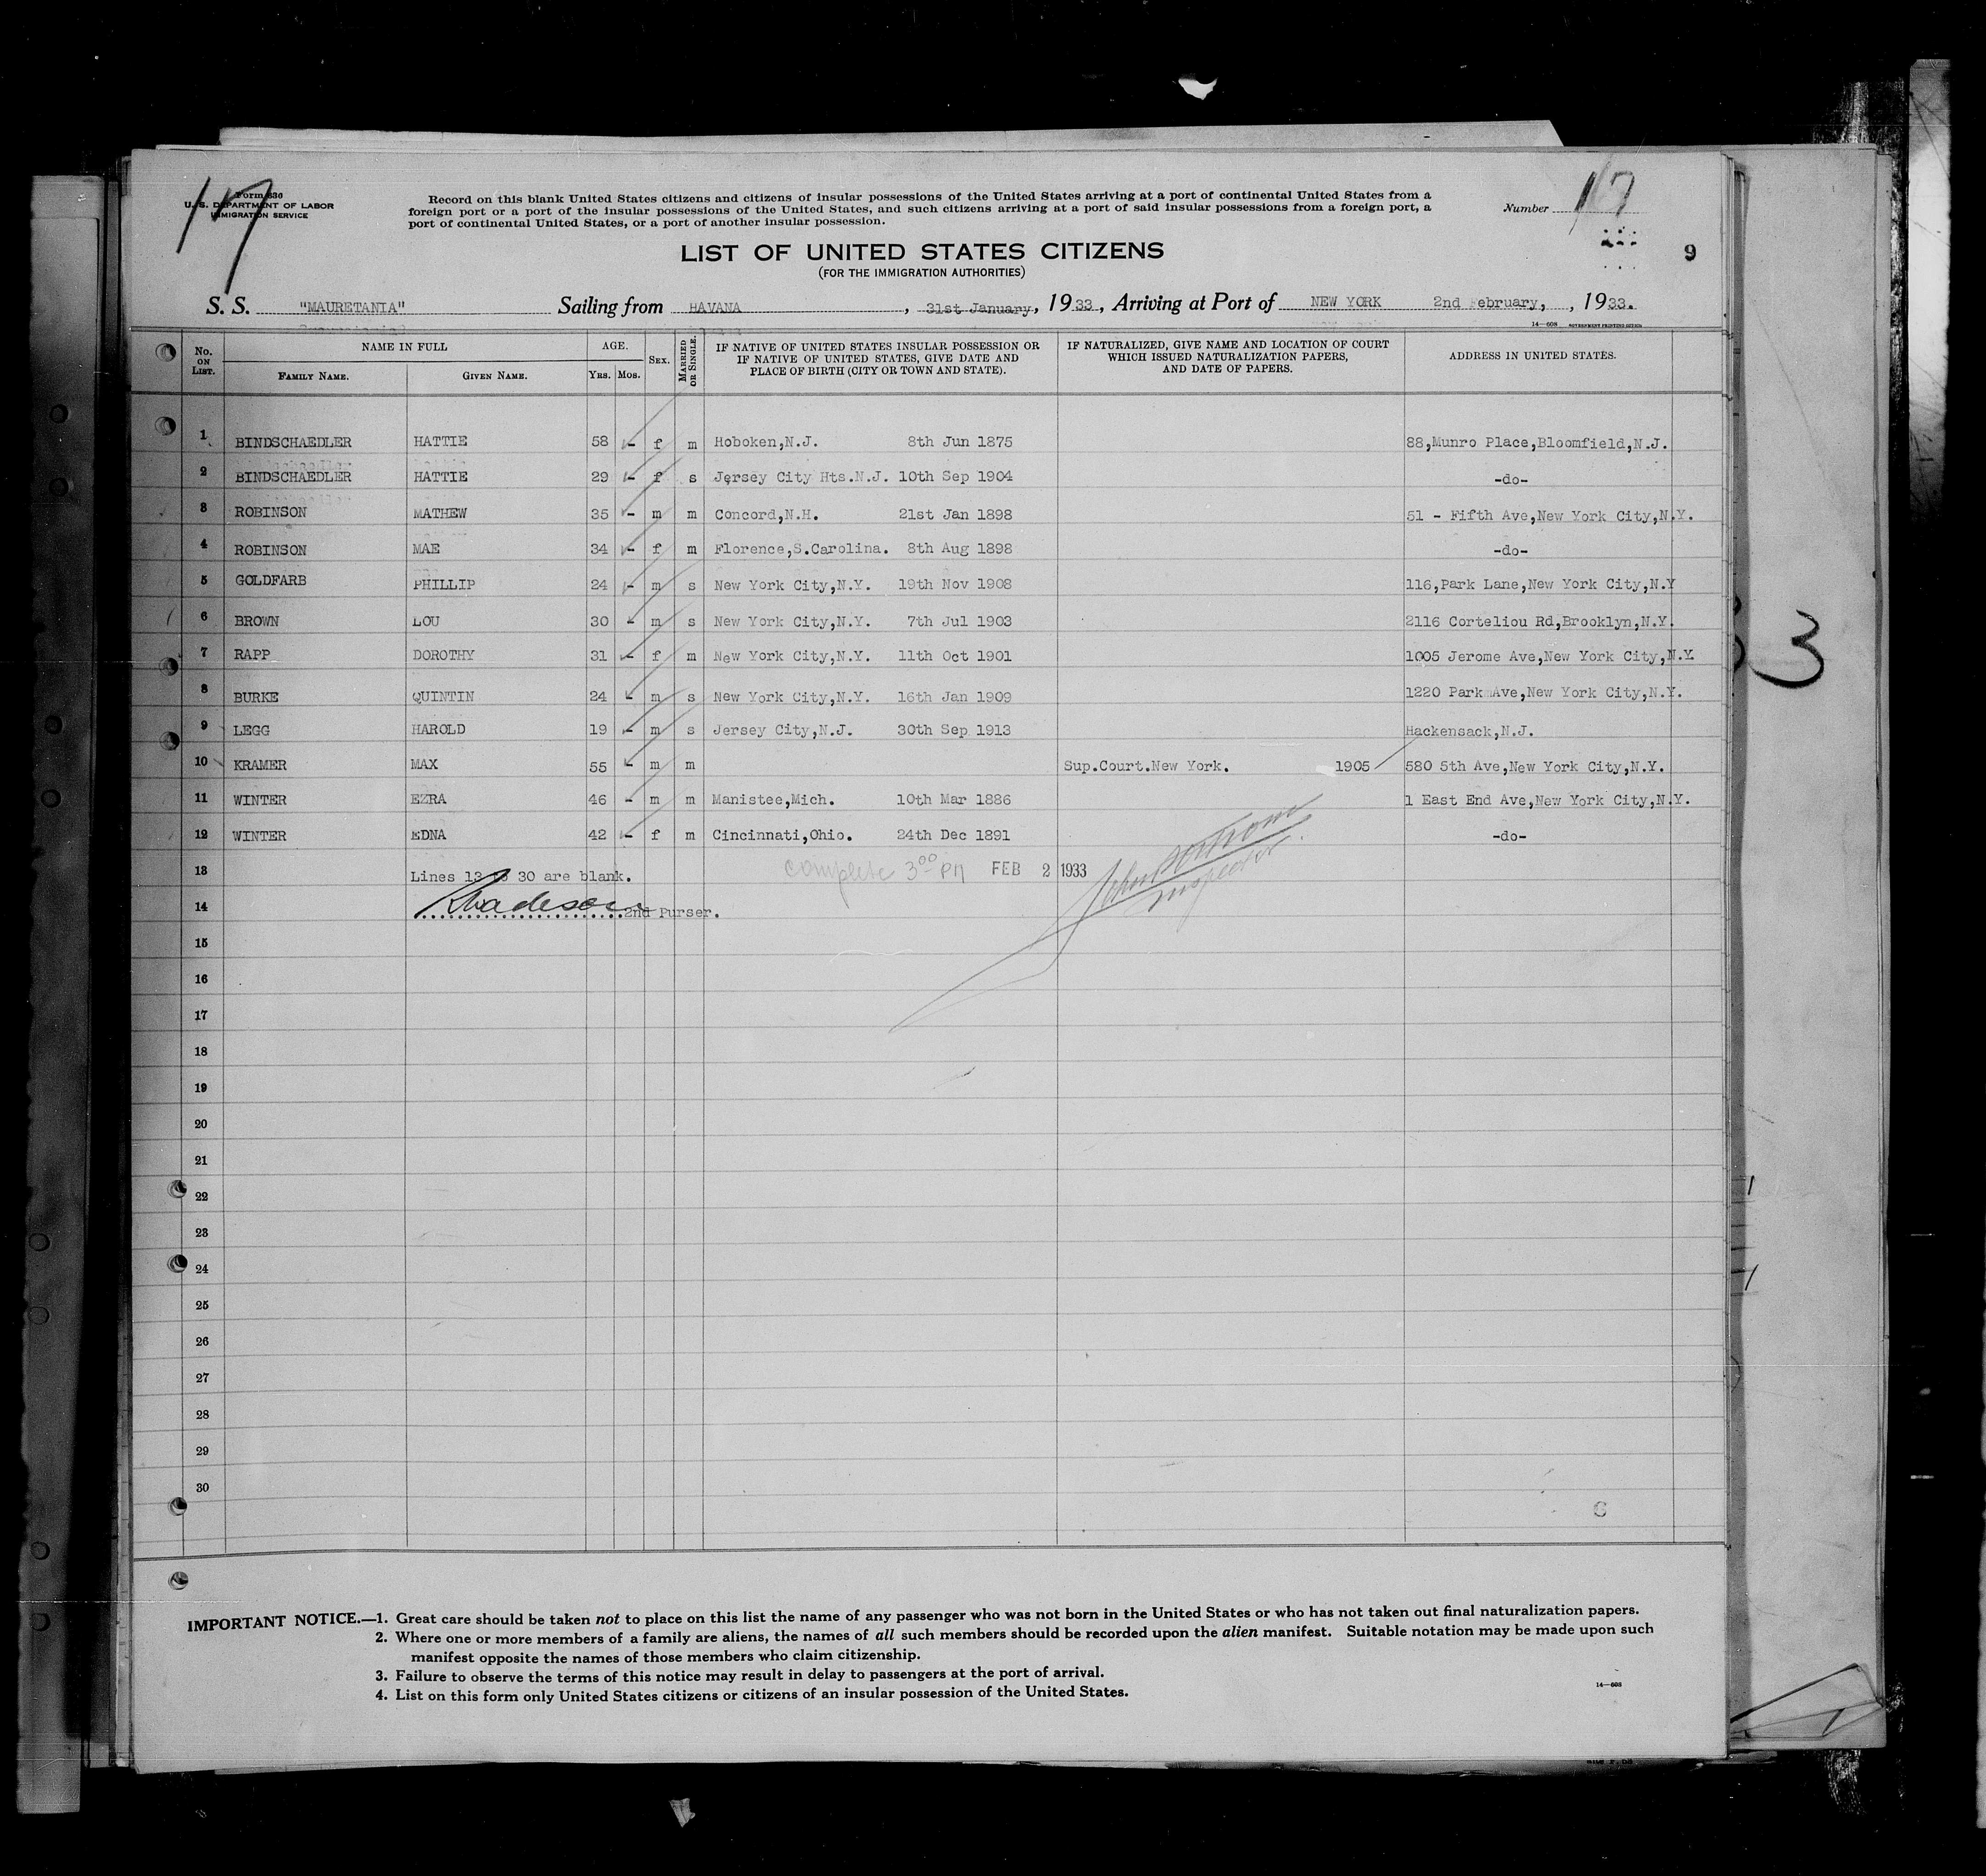 Form 636
U. S. DEPARTMENT OF LABOR
IMMIGRATION SERVICE
117
Record on this blank United States citizens and citizens of insular possessions of the United States arriving at a port of continental United States from a
foreign port or a port of the insular possessions of the United States, and such citizens arriving at a port of said insular possessions from a foreign port, a
port of continental United States, or a port of another insular possession.
Number 167
LIST OF UNITED STATES CITIZENS
(FOR THE IMMIGRATION AUTHORITIES)
9
S. S. "MAURETANIA" Sailing from HAVANA, 31st January, 1933, Arriving at Port of NEW YORK 2nd February, , 1933.
14—608 GOVERNMENT PRINTING OFFICE
No. ON LIST. NAME IN FULL FAMILY NAME. GIVEN NAME. AGE. YRS. MOS. SEX. MARRIED OR SINGLE. IF NATIVE OF UNITED STATES INSULAR POSSESSION OR IF NATIVE OF UNITED STATES, GIVE DATE AND PLACE OF BIRTH (CITY OR TOWN AND STATE). IF NATURALIZED, GIVE NAME AND LOCATION OF COURT WHICH ISSUED NATURALIZATION PAPERS, AND DATE OF PAPERS. ADDRESS IN UNITED STATES.
1 BINDSCHAEDLER HATTIE 58 - f m Hoboken,N.J. 8th Jun 1875 88,Munro Place,Bloomfield,N.J.
2 BINDSCHAEDLER HATTIE 29 - f s Jersey City Hts.N.J. 10th Sep 1904 -do-
3 ROBINSON MATHEW 35 - m m Concord,N.H. 21st Jan 1898 51 - Fifth Ave,New York City,N.Y.
4 ROBINSON MAE 34 - f m Florence,S.Carolina. 8th Aug 1898 -do-
5 GOLDFARB PHILLIP 24 - m s New York City,N.Y. 19th Nov 1908 116,Park Lane,New York City,N.Y
6 BROWN LOU 30 - m s New York City,N.Y. 7th Jul 1903 2116 Corteliou Rd,Brooklyn,N.Y.
7 RAPP DOROTHY 31 - f m New York City,N.Y. 11th Oct 1901 1005 Jerome Ave,New York City,N.Y.
8 BURKE QUINTIN 24 - m s New York City,N.Y. 16th Jan 1909 1220 Park Ave,New York City,N.Y.
9 LEGG HAROLD 19 - m s Jersey City,N.J. 30th Sep 1913 Hackensack,N.J.
10 KRAMER MAX 55 - m m Sup.Court.New York. 1905 580 5th Ave,New York City,N.Y.
11 WINTER EZRA 46 - m m Manistee,Mich. 10th Mar 1886 1 East End Ave,New York City,N.Y.
12 WINTER EDNA 42 - f m Cincinnati,Ohio. 24th Dec 1891 -do-
13 Lines 13 to 30 are blank. complete 3 00 PM FEB 2 1933 John Inspector.
14 2nd Purser.
15
16
17
18
19
20
21
22
23
24
25
26
27
28
29
30
33
IMPORTANT NOTICE.—1. Great care should be taken not to place on this list the name of any passenger who was not born in the United States or who has not taken out final naturalization papers.
2. Where one or more members of a family are aliens, the names of all such members should be recorded upon the alien manifest. Suitable notation may be made upon such
manifest opposite the names of those members who claim citizenship.
3. Failure to observe the terms of this notice may result in delay to passengers at the port of arrival.
4. List on this form only United States citizens or citizens of an insular possession of the United States.
14—608